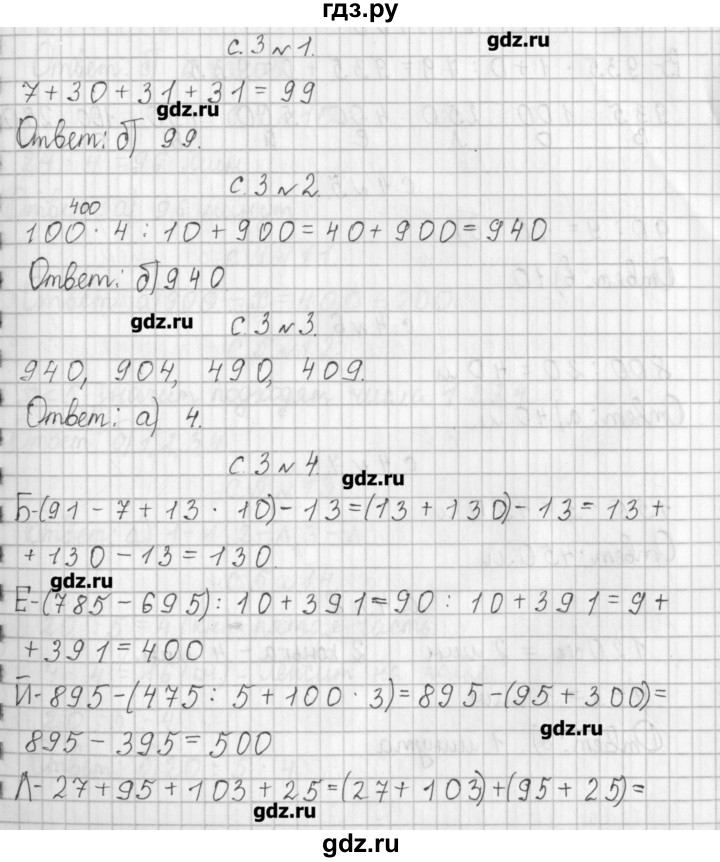 гдз.ру
с. 3 № 1.
gdz.ru
7 + 30 + 31 + 31 = 99
gdz.ru
Ответ: б) 99.
с. 3 № 2.
400
100 · 4 : 10 + 900 = 40 + 900 = 940
Ответ: б) 940
gdz.ru
с. 3 № 3.
940, 904, 490, 409.
Ответ: а) 4.
с. 3 № 4.
gdz.ru
Б-(91 - 7 + 13 · 10) - 13 = (13 + 130) - 13 = 13 +
+ 130 - 13 = 130.
gdz.ru
Е-(785 - 695) : 10 + 391 = 90 : 10 + 391 = 9 +
+ 391 = 400
Й- 895 - (475 : 5 + 100 · 3) = 895 - (95 + 300) =
gdz.ru
895 - 395 = 500
Л- 27 + 95 + 103 + 25 = (27 + 103) + (95 + 25) =
gdz.ru
gdz.ru